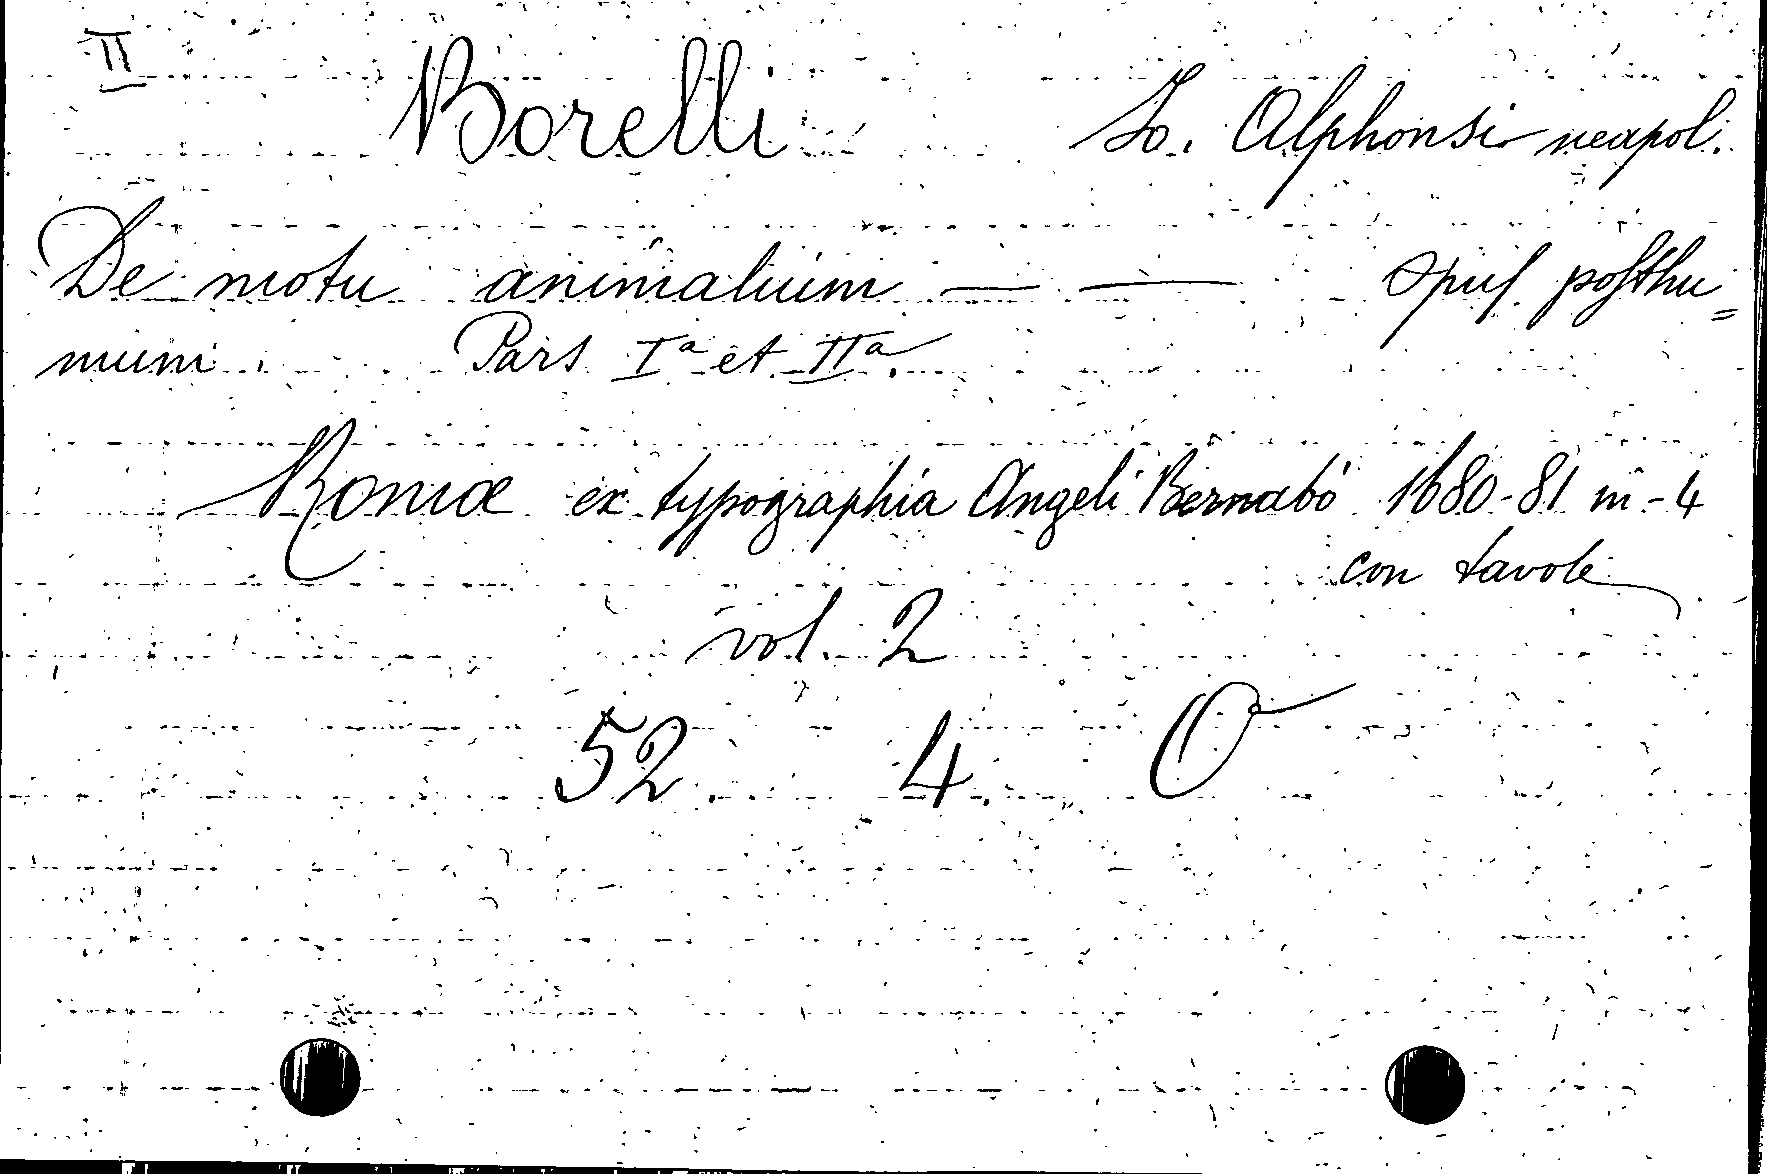 II
Borelli Jo. Alphonsi neapol.
De motu animalium — — Opus posthu=
mum. Pars Iª et IIª.
Romæ ex typographia Angeli Bernabò 1680-81 in-4
con tavole
vol. 2
52. 4. O